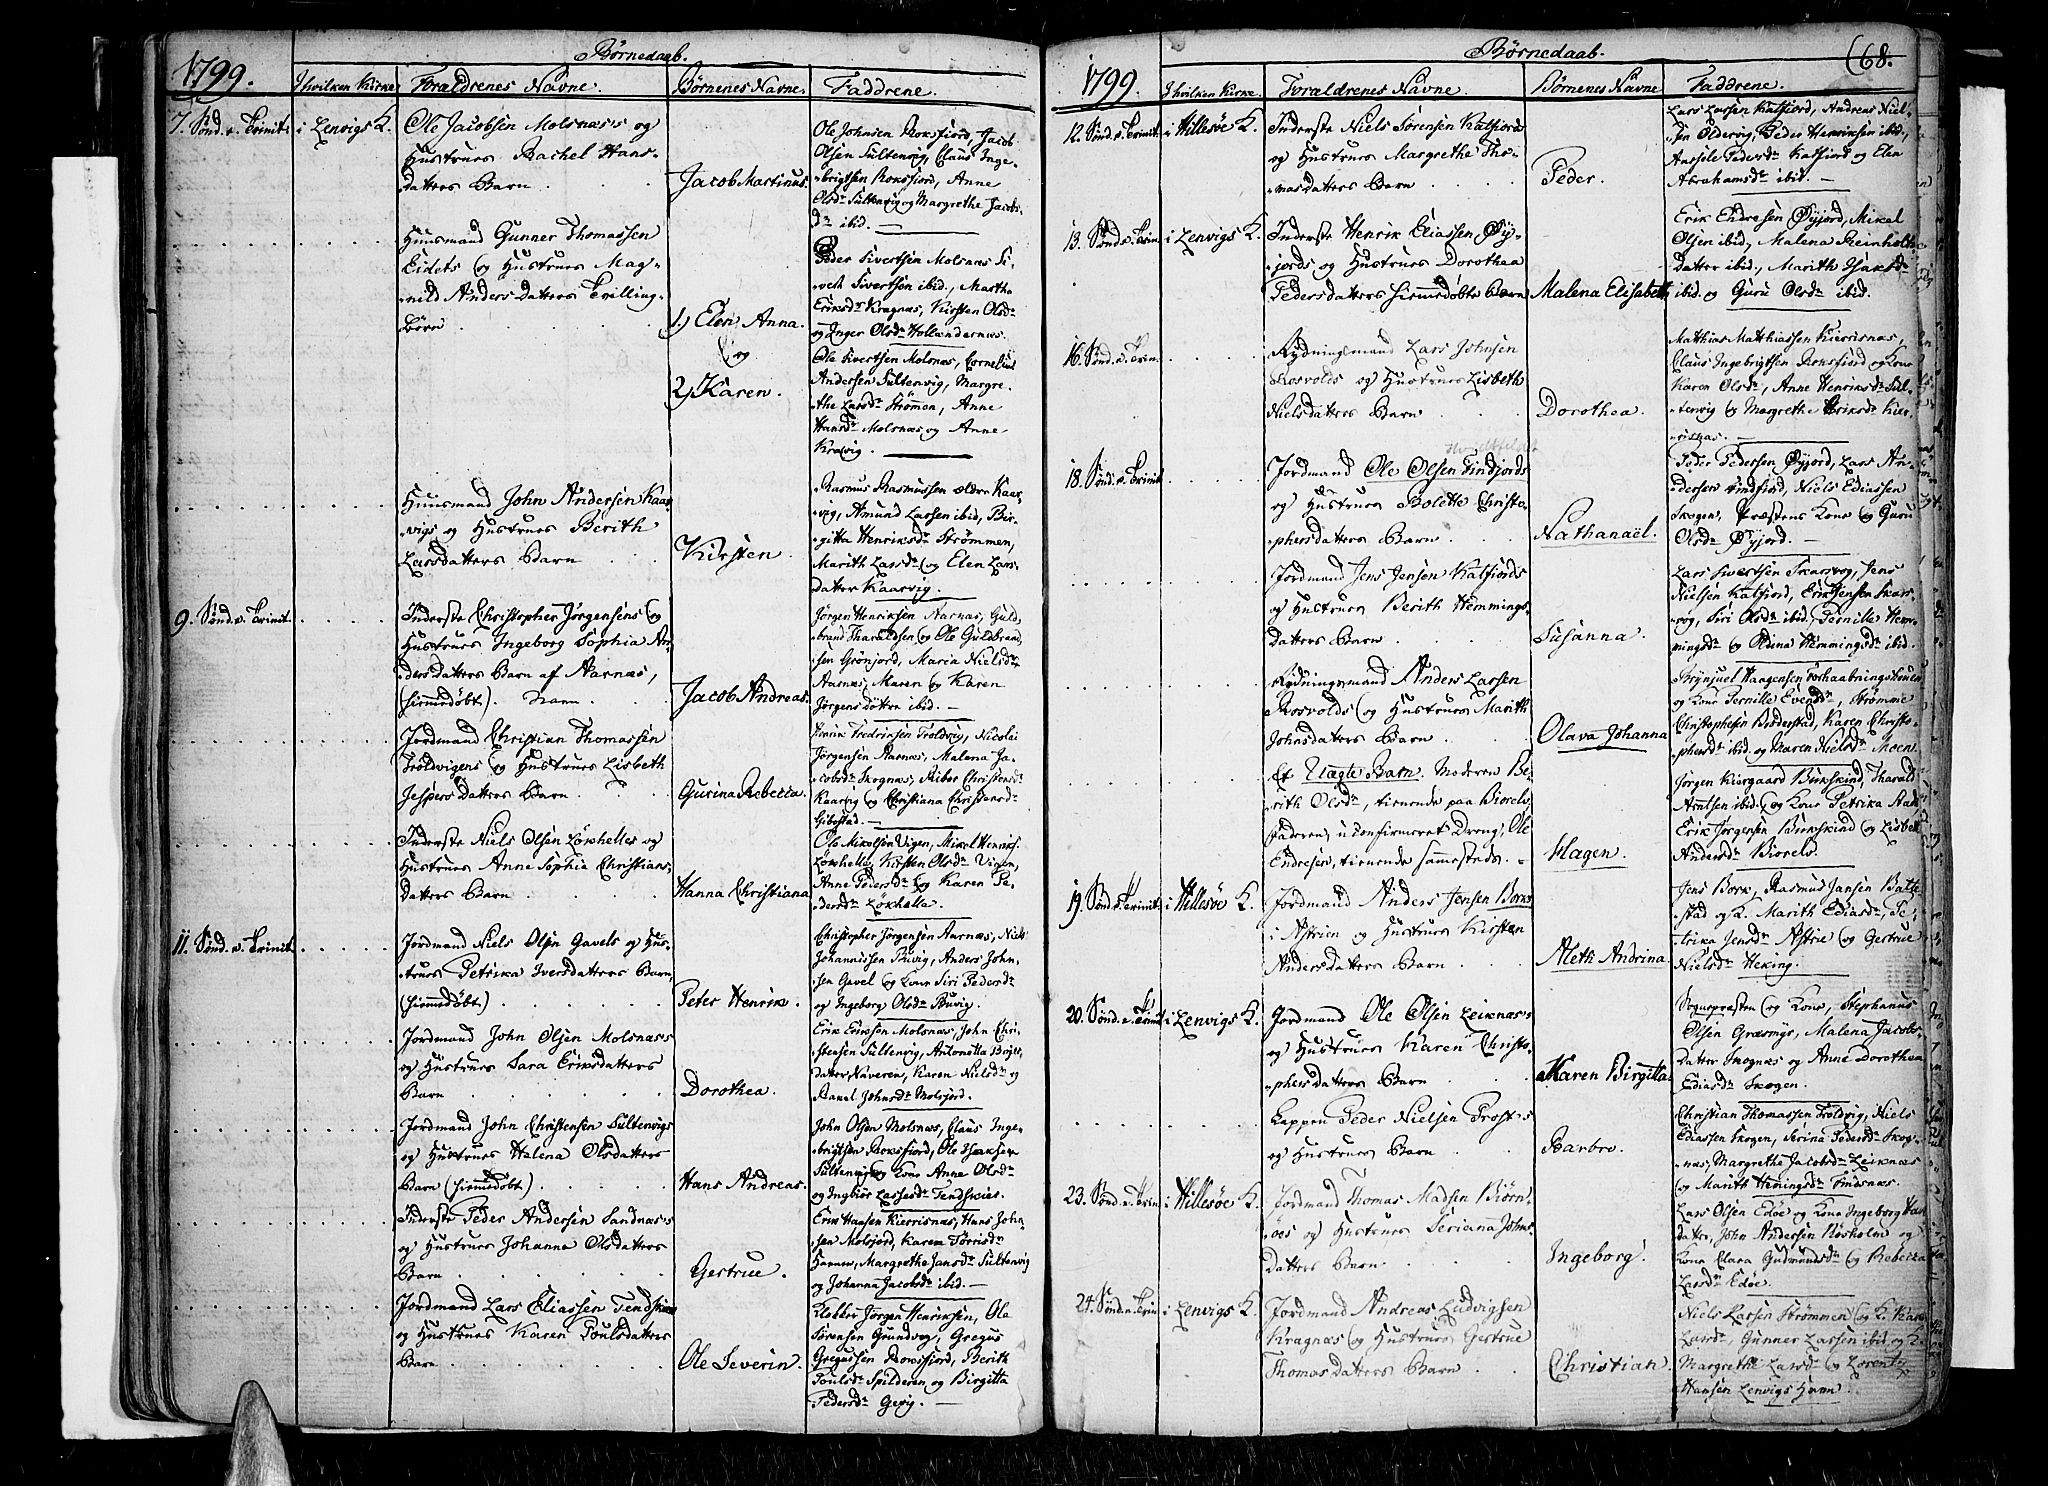 Børnedaab.
1799.
I hvilken Kirke
Forældrenes Navne.
Børnenes Navne.
Faddrene.
7. Sønd. e. Trinit.
i Lenvigs K.
Ole Jacobsen Molsnæs's og
Hustrues Rachel Hans-
datters Barn
Jacob Martinus.
Ole Johnsen Rossfiord, Jacob
Olsen Sultenvig, Claus Inge-
brigtsen Rossfiord, Anne
Olsdr Sultenvig og Margrethe Jacobs-
dr ibid.
Huusmand Gunner Thomassen
Eidets og Hustrues Mag-
nild Andersdatters Tvilling-
børn
1.) Elen Anna.
og
2.) Karen.
Peder Sivertsen Molsnæs, Si-
vert Sivertsen ibid., Martha
Eriksdr Kragnæs, Kirsten Olsdr
og Inger Olsdr Hollændernæs.
Ole Sivertsen Molsnæs, Cornelius
Andersen Sultenvig, Margre-
the Larsdr Strömen, Anne
Hansdr Molsnæs og Anne
Kralvig.
Huusmand John Andersen Kaar-
vigs og Hustrues Berith
Larsdatters Barn
Kirsten.
Rasmus Rasmussen ældre Kaar-
vig, Amund Larsen ibid, Bir-
gitta Henriksdr Strömmen,
Marith Larsdr og Elen Lars-
datter Kaarvig.
9. Sønd. e. Trinit.
Inderste Christopher Jörgensens og
Hustrues Ingeborg Sophia An-
dersdatters Barn af Aarnæs,
(hiemmedøbt). Navn
Jacob Andreas.
Jörgen Henriksen Aarnæs, Guld-
brand Tharaldsen og Ole Guldbrand-
sen Grönjord, Maria Nielsdr
Aarnæs, Maren og Karen
Jörgensdöttre ibid.
Jordmand Christian Thomassen
Troldvigens og Hustrues Lisbeth
Jespersdatters Barn
Gurina Rebecca.
Fredriksen Troldvig, Nicolai
Jörgensen Aarnæs, Malena Ja-
cobsdr Skognæs, Riber Christensdr
Kaarvig og Christiana Christensdr
Gibostad.
Inderste Niels Olsen Löxhelles og
Hustrues Anne Sophia Christians-
datters Barn
Hanna Christiana
Ole Mikelsen Vigen, Mikel Henriks.
Löxhelle, Kirsten Olsdr Vigen,
Anne Pedersdr og Karen Pe-
dersdr Löxhelle.
11. Sønd. e. Trinit.
Jordmand Niels Olsen Gavels og Hus-
trues Petrika Iversdatters Barn,
(hiemmedøbt)
Peter Henrik.
Christopher Jörgensen Aarnæs, Niels
Johannissen Buvig, Anders John-
sen Gavel og Kone Siri Pedersdr
og Ingeborg Olsdr Buvig.
Jordmand John Olsen Molsnæs's
og Hustrues Sara Eriksdatters
Barn
Dorothea.
Erik Eriksen Molsnæs, John Chri-
stensen Sultenvig, Antonetta Birgit-
datter Naveren, Karen Nielsdr og
Ranel Johnsdr Molsjord.
Jordmand John Christensen Sultenvigs
og Hustrues Helena Olsdatters
Barn (hiemmedøbt)
Hans Andreas.
John Olsen Molsnæs, Claus Inge-
brigtsen Rossfiord, Ole Isaksen
Sultenvig og Kone Anne Olsdr
og Ingbör Lassesdr Tendskier.
Inderste Peder Andersen Sandnæs's
og Hustrues Johanna Olsdatters
Barn
Gertrue.
Erik Hansen Kierrisnæs, Hans John-
sen Molsjord, Karen Törrisdr
Havnen, Margrethe Jansdr Sultenvig
og Johanna Jacobsdr ibid.
Jordmand Lars Eliassen Tendskiers
og Hustrues Karen Poulsdatters
Barn
Ole Severin.
Klokker Jörgen Henriksen, Ole
Sörensen Grundvog, Gregus
Gregussen Rossfiord, Berith
Poulsdr Spilderen og Birgitta
Pedersdr Gevig.
Børnedaab.
68.
1799.
I hvilken Kirke.
Forældrenes Navne.
Børnenes Navne
Faddrene.
12. Sønd. e. Trinit.
i Hillesöe K.
Inderste Niels Sörensen Katfiords
og Hustrues Margrethe Tho-
masdatters Barn
Peder.
Lars Larsen Katfiord, Andreas Niel-
sen Oldervig, Peder Henriksen ibid.,
Aassile Pedersdr Katfiord og Elen
Abrahamsdr ibid.
13. Sønd. e. Trin.
i Lenvigs K.
Inderste Henrik Eliassen Øy-
jords og Hustrues Dorothea
Pedersdatters hiemmedøbte Barn
Malena Elisabeth
Erik Endresen Øyjord, Mikel
Olsen ibid., Malena Reinholts-
datter ibid., Marith Isaksdr
ibid. og Guru Olsdr ibid.
16. Sønd. e. Trin.
Rydningsmand Lars Johnsen
Rosvolds og Hustrues Lisbeth
Nielsdatters Barn
Dorothea.
Mathias Matthiassen Kierrisnæs,
Claus Ingebrigtsen Rossfiord og Kone
Karen Olsdr, Anne Henriksdr Sul-
tenvig og Margrethe Eriksdr Kier-
risnæs.
18. Sønd. e. Trinit.
Jordmand Ole Olsen Findfjords
og Hustrues Bolette Christo-
phersdatters Barn
Nathanaël.
Peder Pedersen Øyjord, Lars An-
dersen Findfiord, Niels Ediassen
Skogen, Præstens Kone og Guru
Olsdr Øyjord.
Jordmand Jens Jensen Katfiords
og Hustrues Berith Hemmings-
datters Barn
Susanna.
Lars Sivertsen Skarsvog, Jens
Nielsen Katfiord, Erik Jensen Skars-
vog, Siri Olsdr ibid, Pernille Hem-
mingsdr og Oldina Hemmingsdr ibid.
Rydningsmand Anders Larsen
Rosvolds og Hustrues Marith
Johnsdatters Barn
Olava Johanna
Brynjuel Haagensen Forhaabningskoven
og Kone Pernille Evendr, Strömmen
Christophersen Bröderstad, Karen Christo-
phersdr ibid og Maren Nielsdr Moen.
Et Uægte Barn. Moderen Be-
rith Olsdr, tienende paa Biorels,
Faderen uconfirmeret Dreng, Ole
Endresen, tienende sammesteds.
Hagen.
Jörgen Kiergaard Birkskind, Tharald
Arntsen ibid. og Kone Petrika
Erik Jörgensen Birkskind og Lisbeth
Andersdr Biorels.
19. Sønd. e. Trinit.
i Hillesöe K.
Jordmand Anders Jensen Borks
i Astrien og Hustrues Kirsten
Andersdatters Barn
Aleth Andrina.
Jens Bork, Rasmus Jansen Balte-
stad og K. Marith Ediasdr, Pe-
trika Jensdr Astrie og Gertrue
Nielsdr Heking.
20. Sønd. e. Tr.
i Lenvigs K.
Jordmand Ole Olsen Leiknæs's
og Hustrues Karen Christo-
phersdatters Barn
Karen Birgitta.
Sognepræsten og Kone, Stephanus
Olsen Græsmyr, Malena Jacobs-
datter Skognæs og Anne Dorothea
Ediasdr Skogen.
Lappen Peder Nielsen Prost's
og Hustrues Barn
Barbro.
Christian Thomassen Troldvig, Niels
Ediassen Skogen, Serina Pedersdr Skog-
næs, Margrethe Jacobsdr Leiknæs
og Marith Hemingsdr Findsnæs.
23. Sønd. e. Trin.
i Hillesöe K.
Jordmand Thomas Madsen Biörn-
öes og Hustrues Seriana Johns-
datters Barn
Ingeborg.
Lars Olsen Edöe og Kone Ingeborg
datter, John Andersen Röskholm og
Kone Clara Gudmundsdr og Rebecca
Larsdr Edöe.
24. Sønd. e. Trin.
i Lenvigs K.
Jordmand Andreas Ludvigsen
Kragnæs og Hustrues Gertrue
Thomasdatters Barn
Christian.
Niels Larsen Strömmen og K. Karen
Larsdr, Gunner Larsen ibid og K.
Margrethe Larsdr og Lorentz
Hansen Lenvigs Havn.